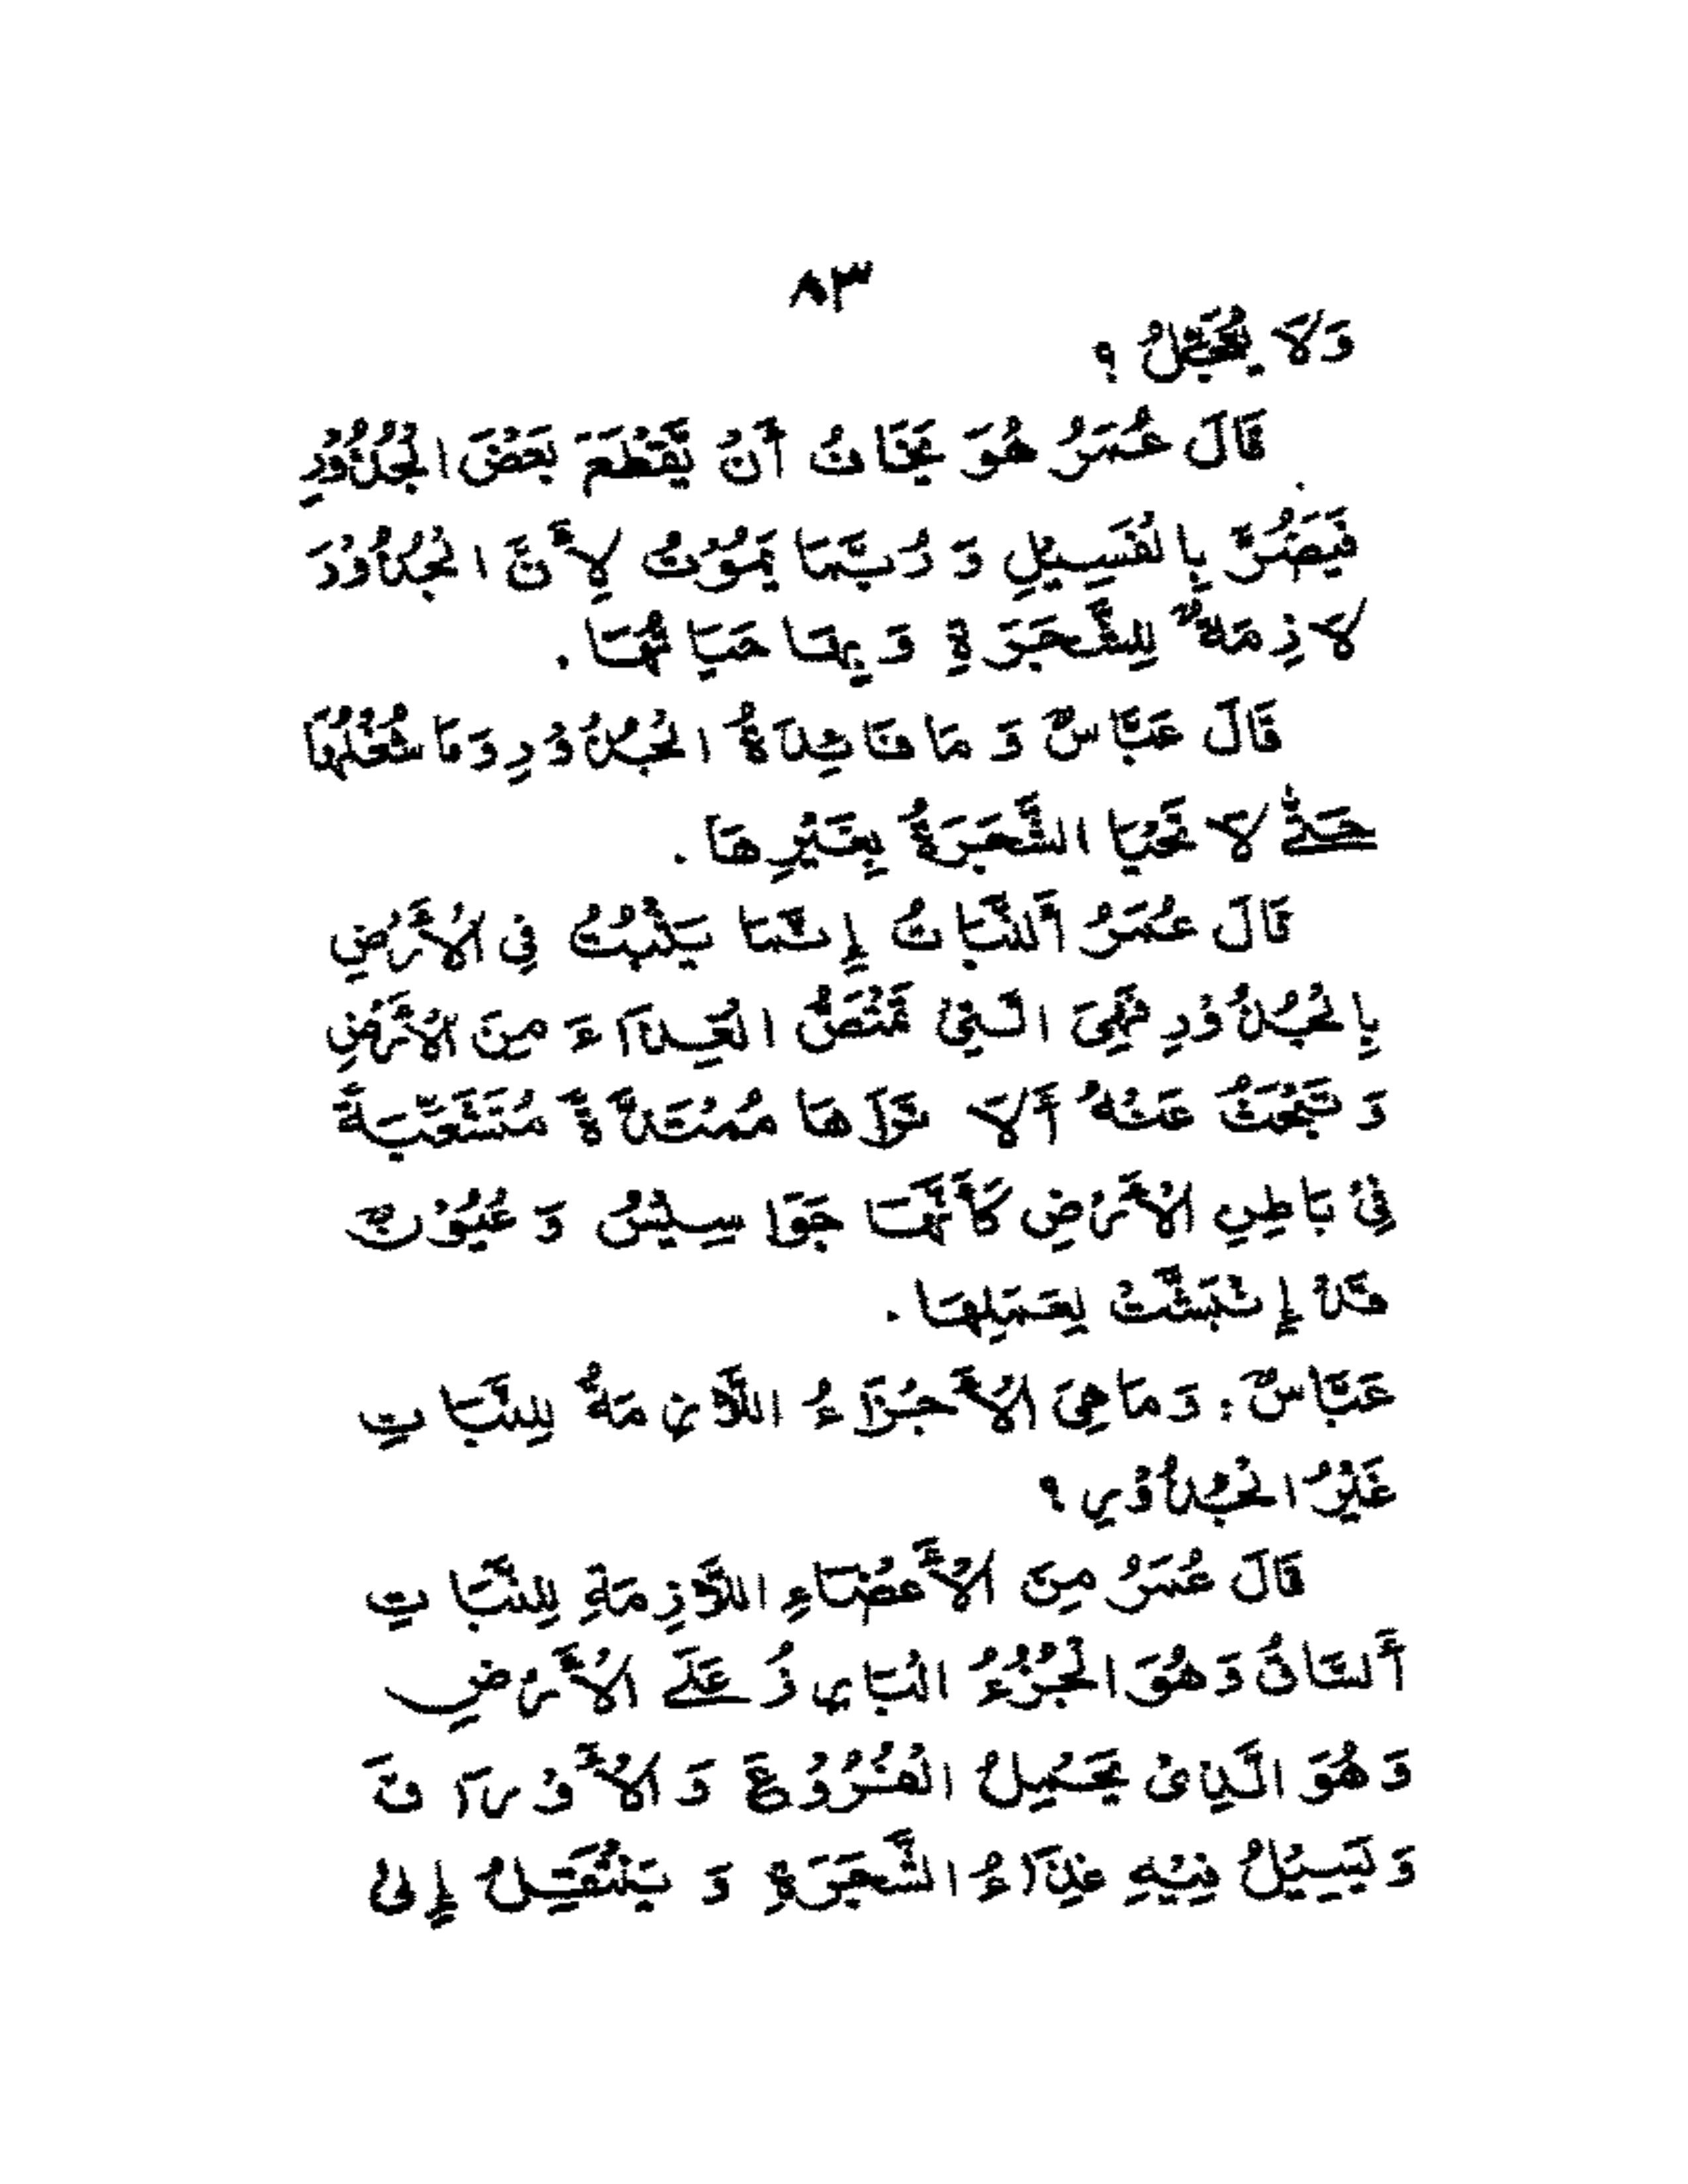 ٨٣
وَلَا يُعَجِّلُ ؟
قَالَ عُمَرُ هُوَ يَخَافُ أَنْ يَّقْطَعَ بَعْضَ الْجُذُوْرِ
فَيَضُرَّ بِالْفَسِيْلِ وَ رُبَّمَا يَمُوْتُ لِأَنَّ الْجُذُوْرَ
لَازِمَةٌ لِلشَّجَرَةِ وَ بِهَا حَيَاتُهَا .
قَالَ عَبَّاسٌ وَ مَا فَائِدَةُ الْجُذُوْرِ وَمَا شُغْلُهَا
حَتّٰى لَا تَحْيَا الشَّجَرَةُ بِغَيْرِهَا .
قَالَ عُمَرُ اَلنَّبَاتُ إِنَّمَا يَنْبُتُ فِي الْأَرْضِ
بِالْجُذُوْرِ فَهِيَ الَّتِيْ تَمْتَصُّ الْغِذَآءَ مِنَ الْأَرْضِ
وَ تَبْحَثُ عَنْهُ أَلَا تَرَاهَا مُمْتَدَّةً مُتَشَعِّبَةً
فِيْ بَاطِنِ الْأَرْضِ كَأَنَّهَا جَوَاسِيْسُ وَ عُيُوْنٌ
قَدْ إِنْبَثَّتْ لِعَمَلِهَا .
عَبَّاسٌ : وَ مَا هِيَ الْأَجْزَاءُ اللَّازِمَةُ لِلنَّبَاتِ
غَيْرُ الْجُذُوْرِ ؟
قَالَ عُمَرُ مِنَ الْأَعْضَاءِ اللَّازِمَةِ لِلنَّبَاتِ
أَلسَّاقُ وَهُوَ الْجُزْءُ الْبَارِزُ عَلَى الْأَرْضِ
وَ هُوَ الَّذِيْ يَحْمِلُ الْفُرُوْعَ وَ الْأَوْرَاقَ
وَ يَسِيْلُ فِيْهِ غِذَآءُ الشَّجَرَةِ وَ يَنْتَقِلُ إِلَى